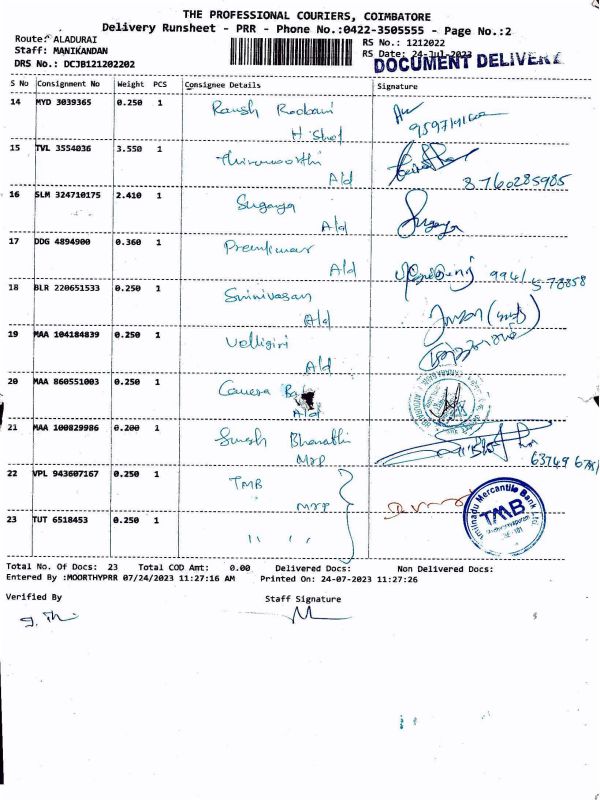 THE PROFESSIONAL COURIERS, COIMBATORE
Delivery Runsheet - PRR - Phone No.:0422-3505555 - Page No.:2
Route: ALADURAI
RS No.: 1212022
Staff: MANIKANDAN
RS Date: 24-Jul-2023
DOCUMENT DELIVERY
DRS No.: DCJB121202202
S No Consignment No Weight PCS Consignee Details Signature
14 MYD 3039365 0.250 1
15 TVL 3554036 3.550 1 Thirumoorthi
Ald 8760285985
16 SLM 324710175 2.410 1 Suganya Suganya
Ald
17 DDG 4894900 0.360 1 Premkumar
Ald 99941 578858
18 BLR 220651533 0.250 1 Srinivasan
Ald
19 MAA 104184839 0.250 1 Velligiri
Ald
20 MAA 860551003 0.250 1 Canara
Ald
21 MAA 100829986 0.200 1 Suresh Bharathi
MTP
22 VPL 943607167 0.250 1 TMB
MTP
Tamilnad Mercantile Bank Ltd.
TMB
23 TUT 6518453 0.250 1 " "
Total No. Of Docs: 23 Total COD Amt: 0.00 Delivered Docs: Non Delivered Docs:
Entered By :MOORTHYPRR 07/24/2023 11:27:16 AM Printed On: 24-07-2023 11:27:26
Verified By Staff Signature